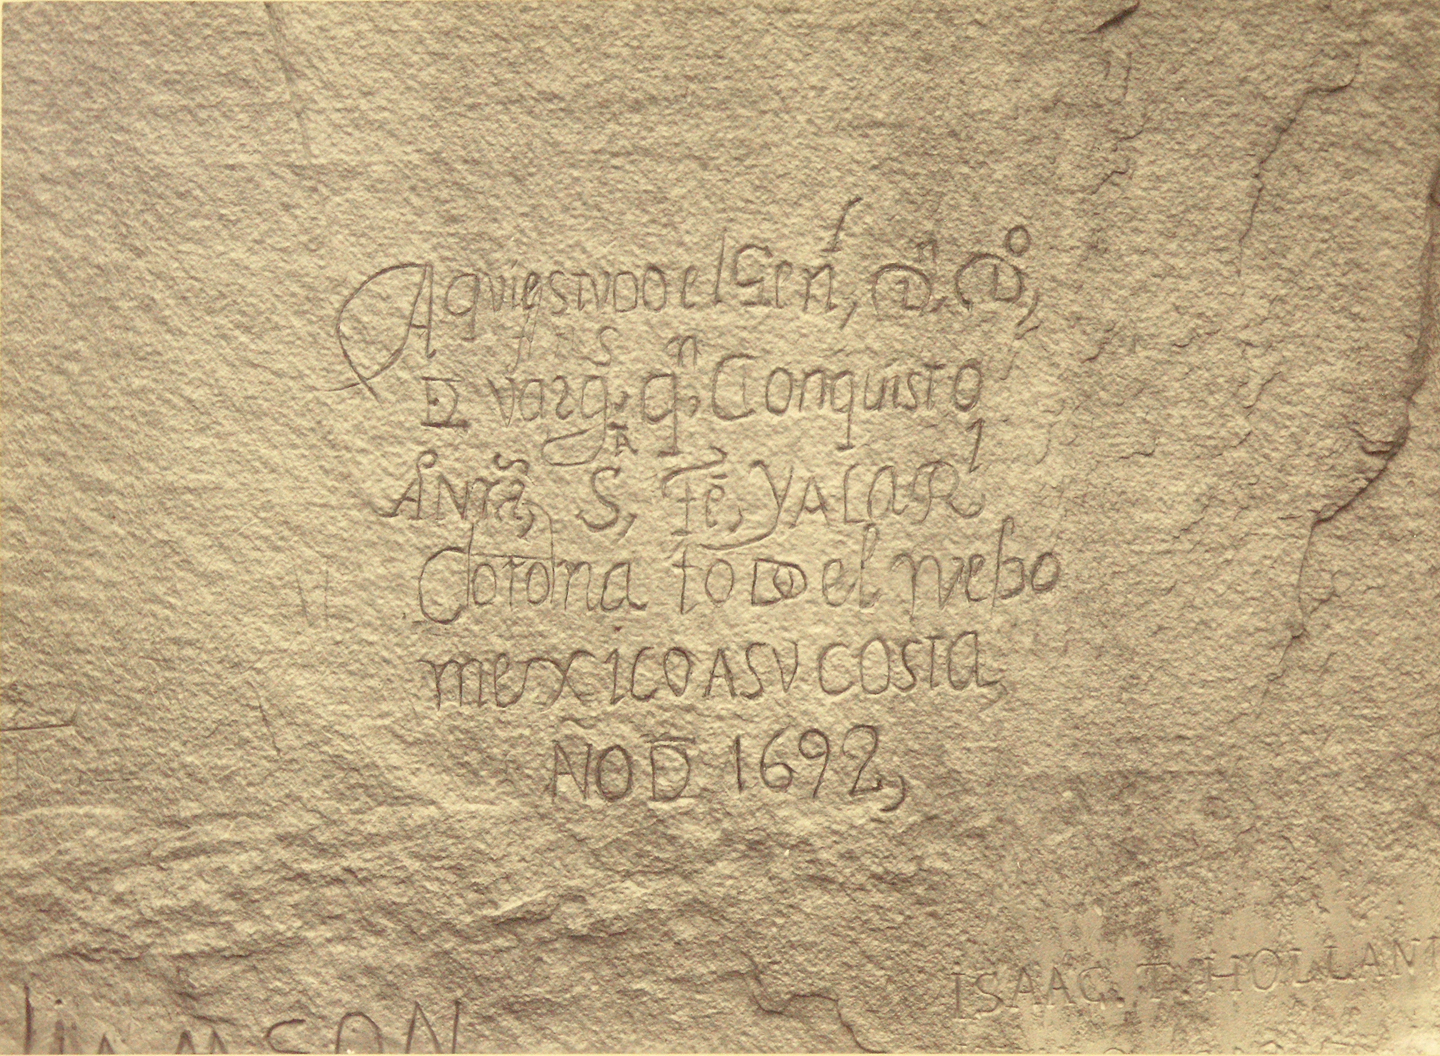 Aqui estvDo el Gen^l, D^n, D^o,
D varg^s, q^n Conquisto
Å Nrã, S^A, Fē, y A la R^l
Corona toDo el nvebo
mexico A sv costa,
ÑO D 1692,
ISAAC T. HOLLAND